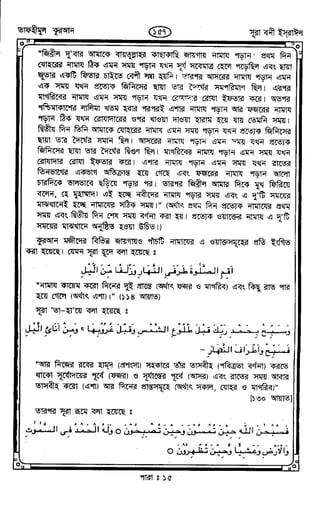 তাফহীমুল কুরআন ১৫৭ সূরা বনী ইসরাঈল
"জিব্রীল দু'বার আমাকে বায়তুল্লাহর কাছাকাছি জায়গায় নামায পড়ান। প্রথম দিন
যোহরের নামায ঠিক এমন সময় পড়ান যখন সূর্য সবেমাত্র হেলে পড়েছিল এবং ছায়া
জুতার একটি ফিতার চাইতে বেশী লম্বা হয়নি। তারপর আসরের নামায পড়ান এমন
এক সময় যখন প্রত্যেক জিনিসের ছায়া তার দৈর্ঘ্যের সমপরিমাণ ছিল। এরপর
মাগরিবের নামায এমন সময় পড়ান যখন রোযাদার রোযা ইফতার করে। অতপর
পশ্চিমাকাশের লালিমা খতম হবার পরপরই এশার নামায পড়ান আর ফজরের নামায
পড়ান ঠিক যখন রোযাদারের ওপর খাওয়া দাওয়া হারাম হয়ে যায় তেমনি সময়।
দ্বিতীয় দিন তিনি আমাকে যোহরের নামায এমন সময় পড়ান যখন প্রত্যেক জিনিসের
ছায়া তার দৈর্ঘ্যের সমান ছিল। আসরের নামায পড়ান এমন সময় যখন প্রত্যেক
জিনিসের ছায়া তার দৈর্ঘ্যের দ্বিগুণ ছিল। মাগরিবের নামায পড়ান এমন সময় যখন
রোযাদার রোযা ইফতার করে। এশার নামায পড়ান এমন সময় যখন রাতের
তিনভাগের একভাগ অতিক্রান্ত হয়ে গেছে এবং ফজরের নামায পড়ান আলো
চারদিকে ভালভাবে ছড়িয়ে পড়ার পর। তারপর জিব্রীল আমার দিকে মুখ ফিরিয়ে
বলেন, হে মুহাম্মাদ! এই হচ্ছে নবীদের নামায পড়ার সময় এবং এ দু'টি সময়ের
মাঝখানেই হচ্ছে নামাযের সঠিক সময়।" (অর্থাৎ প্রথম দিন প্রত্যেক নামাযের প্রথম
সময় এবং দ্বিতীয় দিন শেষ সময় বর্ণনা করা হয়। প্রত্যেক ওয়াক্তের নামায এ দু'টি
সময়ের মাঝখানে অনুষ্ঠিত হওয়া উচিত।)
কুরআন মজীদের বিভিন্ন জায়গায়ও পাঁচটি নামাযের এ ওয়াক্তসমূহের প্রতি ইংগিত
করা হয়েছে। যেমন সূরা হূদে বলা হয়েছে :
أَقِمِ الصَّلٰوةَ طَرَفَيِ النَّهَارِ وَزُلَفًا مِّنَ الَّيْلِ
"নামায কায়েম করো দিনের দুই প্রান্তে (অর্থাৎ ফজর ও মাগরিব) এবং কিছু রাত পার
হয়ে গেলে (অর্থাৎ এশা)।" (১১৪ আয়াত)
সূরা 'তা-হা'য়ে বলা হয়েছে :
وَسَبِّحْ بِحَمْدِ رَبِّكَ قَبْلَ طُلُوعِ الشَّمْسِ وَقَبْلَ غُرُوبِهَا ۚ وَمِنْ اٰنَآئِ الَّيْلِ
فَسَبِّحْ وَاَطْرَافَ النَّهَارِ -
"আর নিজের রবের হামদ (প্রশংসা) সহকারে তাঁর তাসবীহ (পবিত্রতা বর্ণনা) করতে
থাকো সূর্যোদয়ের পূর্বে (ফজর) ও সূর্যাস্তের পূর্বে (আসর) এবং রাতের সময় আবার
তাসবীহ করো (এশা) আর দিনের প্রান্তসমূহে (অর্থাৎ সকাল, যোহর ও মাগরিব)"
[১৩০ আয়াত]
তারপর সূরা রূমে বলা হয়েছে :
فَسُبْحٰنَ اللّٰهِ حِيْنَ تُمْسُوْنَ وَحِيْنَ تُصْبِحُوْنَ ○ وَلَهُ الْحَمْدُ فِى السَّمٰوٰتِ
وَالْاَرْضِ وَعَشِيًّا وَّحِيْنَ تُظْهِرُوْنَ ○
পারা : ১৫